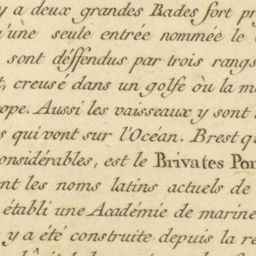 y a deux grandes Rades fort
u'une seule entrée nommée le
sont déffendus par trois rangs
creusé dans un golfe òu la
ope. Aussi les vaisseaux y sont
s qui vont sur l'Océan. Brest
onsidérables, est le Brivates
nt les noms latins actuels de
établi une Académie de marine
y a été construite depuis la